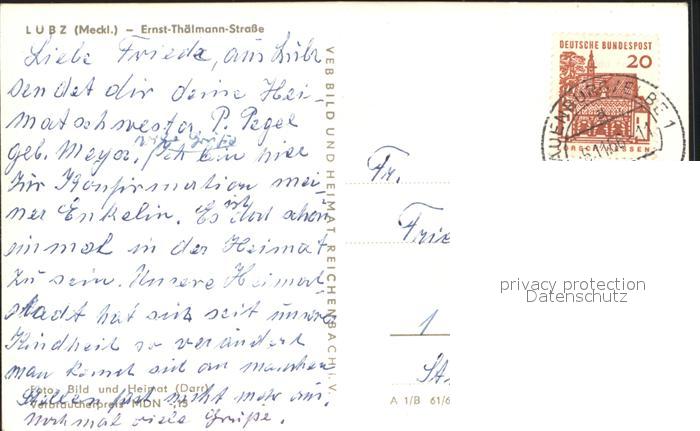 LUBZ (Meckl.) – Ernst-Thälmann-Straße
Liebe Friede, aus Lübz
sendet dir deine Hei-
matschwester P. Pegel
viele Grüße
geb. Meyer. Ich bin hier
zur Konfirmation mei-
ner Enkelin. Es ist doch schön
einmal in der Heimat
zu sein. Unsere Heimat-
stadt hat sich seit unsrer
Kindheit so verändert
man kennt sich an manchen
Stellen fast nicht mehr aus.
Nochmal viele Grüße.
Foto: Bild und Heimat (Darr)
Verbraucherpreis MDN
VEB BILD UND HEIMAT REICHENBACH I. V.
DEUTSCHE BUNDESPOST
20
Fr.
Frie
1
A 1/B 61/6
privacy protection
Datenschutz